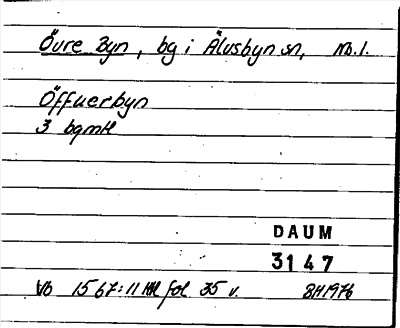 Övre Byn, bg i Älvsbyn sn, Nb.l.
Öffuerbyn
3 bgmtl
DAUM
3147
VB 1567:11 HH fol 35 v. BH 1976